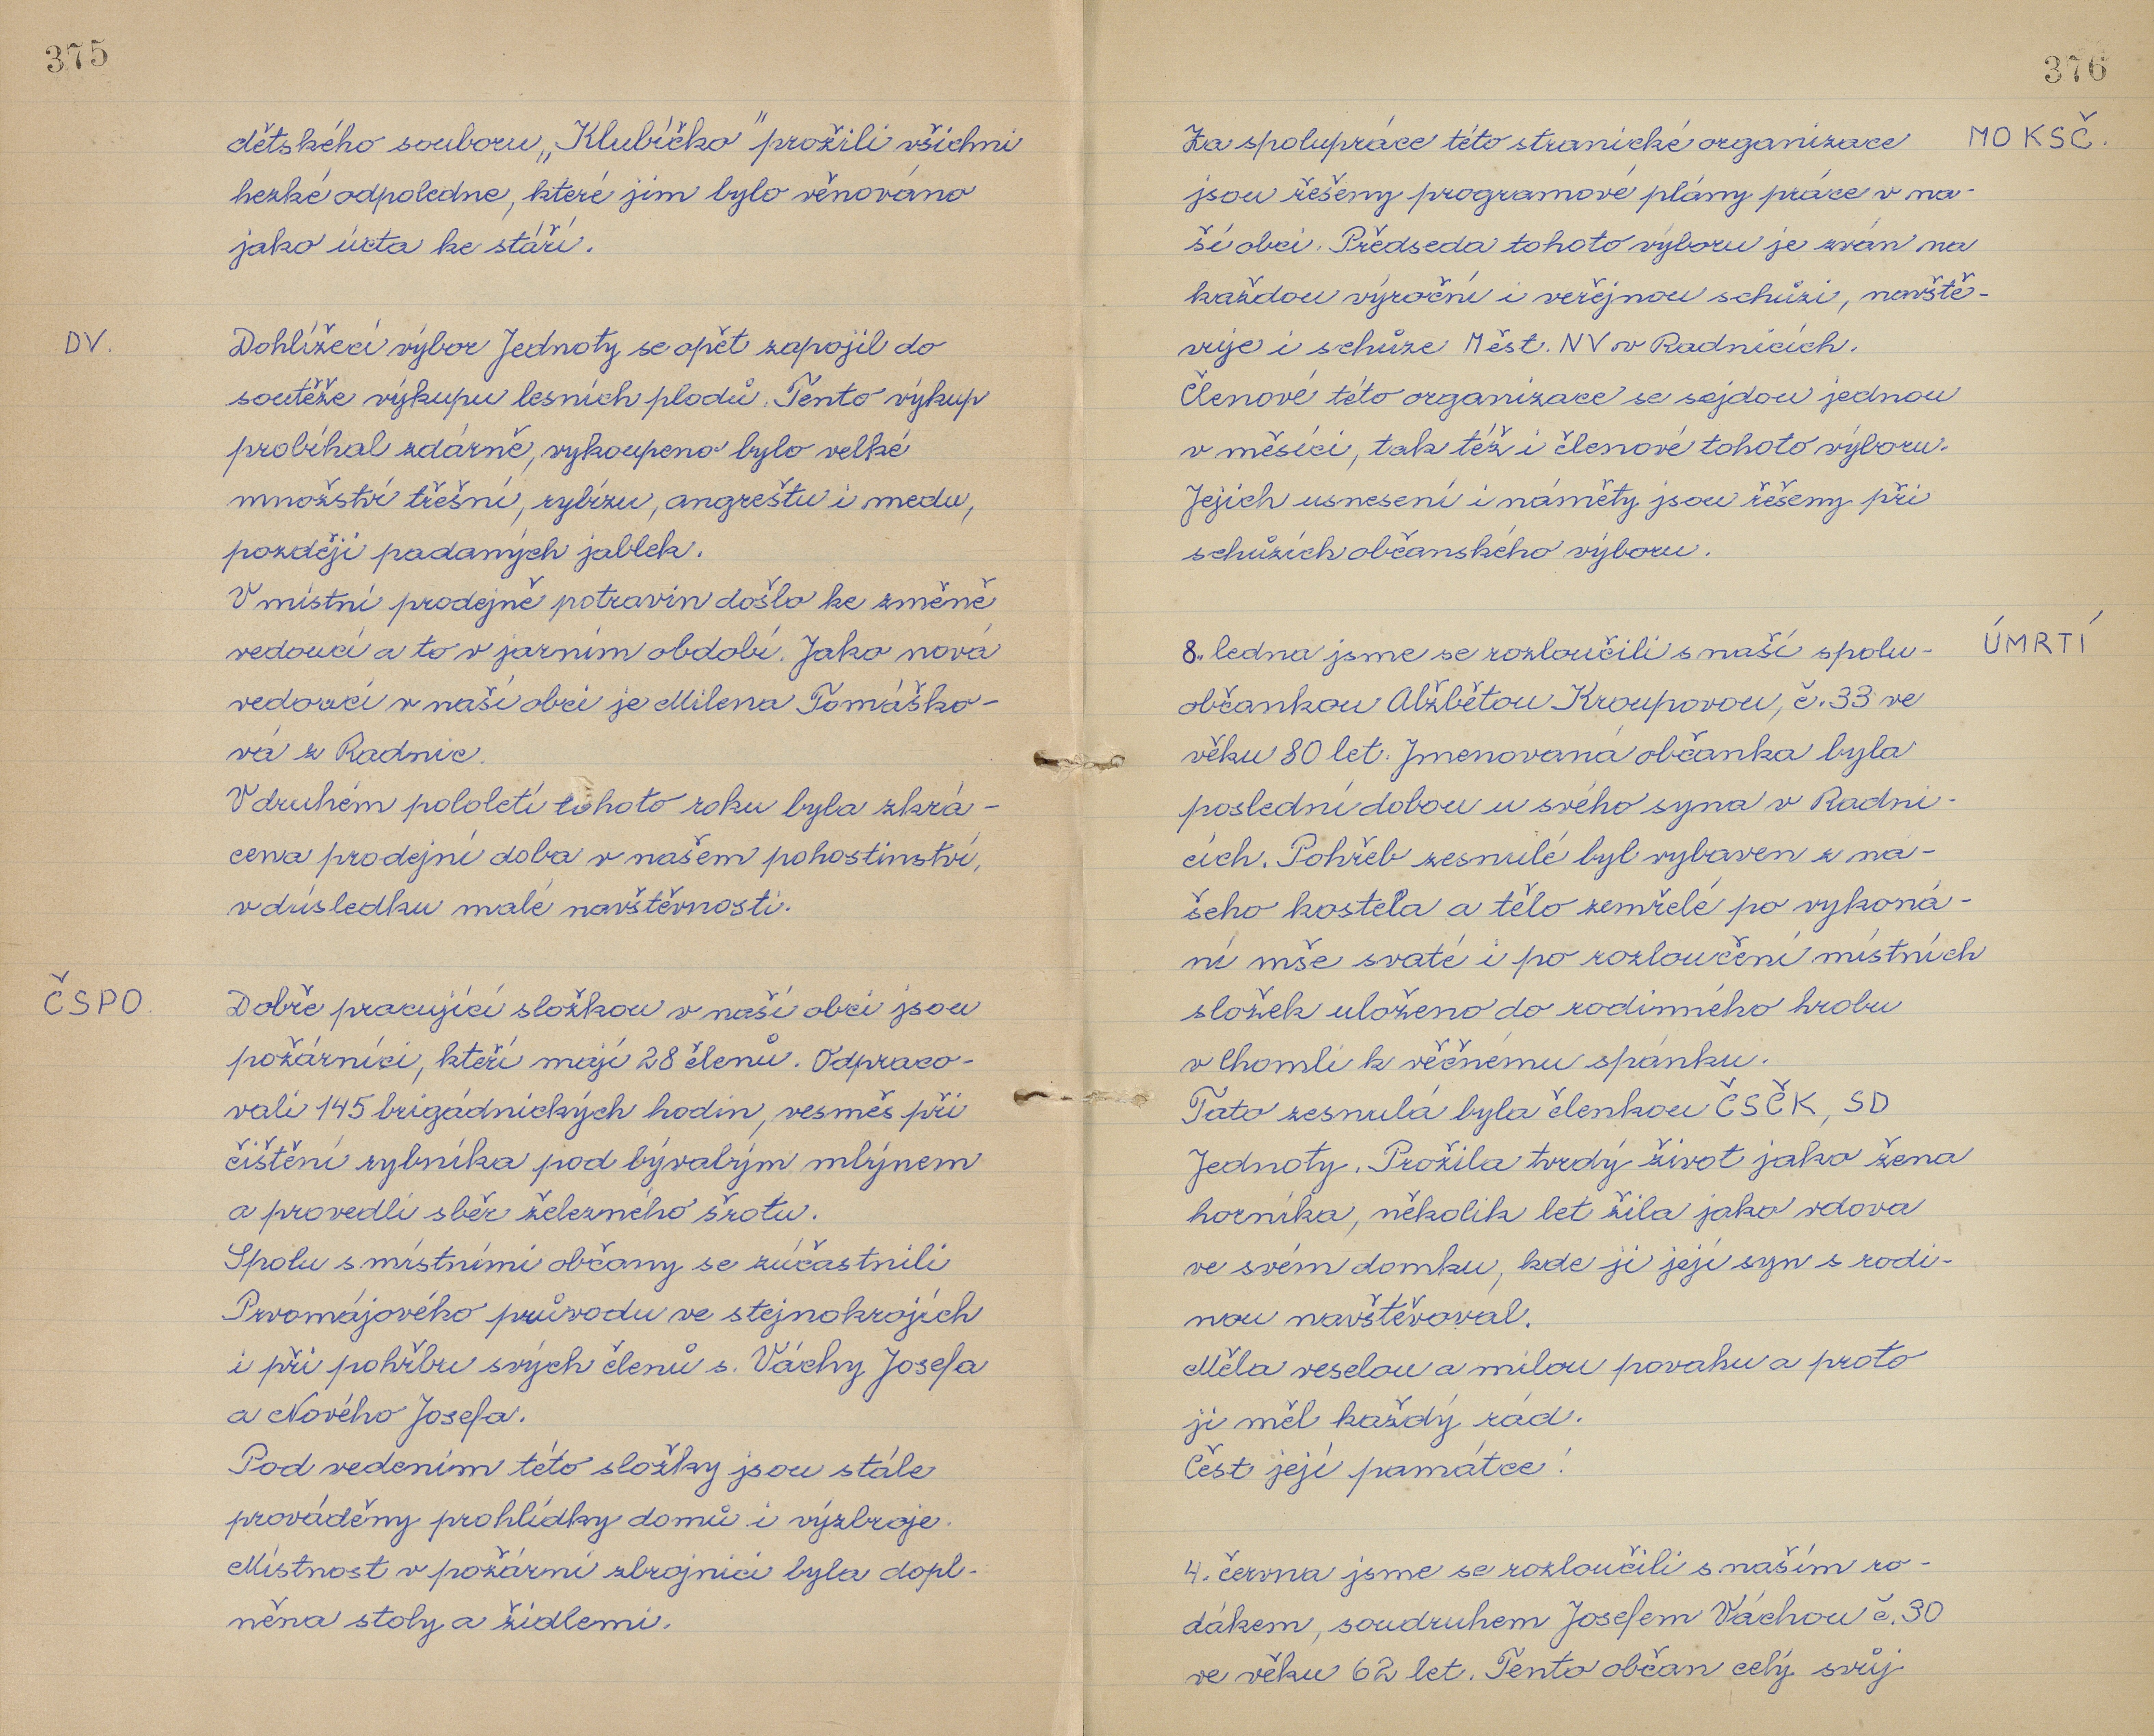 375
dětského souboru „Klubíčko" prožili všichni
hezké odpoledne, které jim bylo věnováno
jako úcta ke stáří.
DV.
Dohlížecí výbor Jednoty se opět zapojil do
soutěže výkupu lesních plodů. Tento výkup
probíhal zdárně, vykoupeno bylo velké
množství třešní, rybízu, angreštu i medu,
později padaných jablek.
V místní prodejně potravin došlo ke změně
vedoucí a to v jarním období. Jako nová
vedoucí v naší obci je Milena Tomáško-
vá z Radnic.
V druhém pololetí tohoto roku byla zkrá-
cena prodejní doba v našem pohostinství,
v důsledku malé navštěvnosti.
ČSPO.
Dobře pracující složkou v naší obci jsou
požárníci, kteří mají 28 členů. Odpraco-
vali 145 brigádnických hodin, vesměs při
čištění rybníka pod bývalým mlýnem
a provedli sběr železného šrotu.
Spolu s místními občany se zúčastnili
Prvomájového průvodu ve stejnokrojích
i při pohřbu svých členů s. Váchy Josefa
a Nového Josefa.
Pod vedením této složky jsou stále
prováděny prohlídky domů i výzbroje.
Místnost v požární zbrojnici byla dopl-
něna stoly a židlemi.
376
MO KSČ.
Za spolupráce této stranické organizace
jsou řešeny programové plány práce v na-
ší obci. Předseda tohoto výboru je zván na
každou výroční i veřejnou schůzi, navště-
vuje i schůze Měst. NV v Radnicích.
Členové této organizace se sejdou jednou
v měsíci, tak též i členové tohoto výboru.
Jejich usnesení i náměty jsou řešeny při
schůzích občanského výboru.
ÚMRTÍ
8. ledna jsme se rozloučili s naší spolu-
občankou Alžbětou Kroupovou, č. 33 ve
věku 80 let. Jmenovaná občanka byla
poslední dobou u svého syna v Radni-
cích. Pohřeb zesnulé byl vybaven z na-
šeho kostela a tělo zemřelé po vykoná-
ní mše svaté i po rozloučení místních
složek uloženo do rodinného hrobu
v Chomli k věčnému spánku.
Tato zesnulá byla členkou ČSČK, SD
Jednoty. Prožila tvrdý život jako žena
horníka, několik let žila jako vdova
ve svém domku, kde ji její syn s rodi-
nou navštěvoval.
Měla veselou a milou povahu a proto
ji měl každý rád.
Čest její památce!
4. června jsme se rozloučili s naším ro-
dákem, soudruhem Josefem Váchou č. 30
ve věku 62 let. Tento občan celý svůj